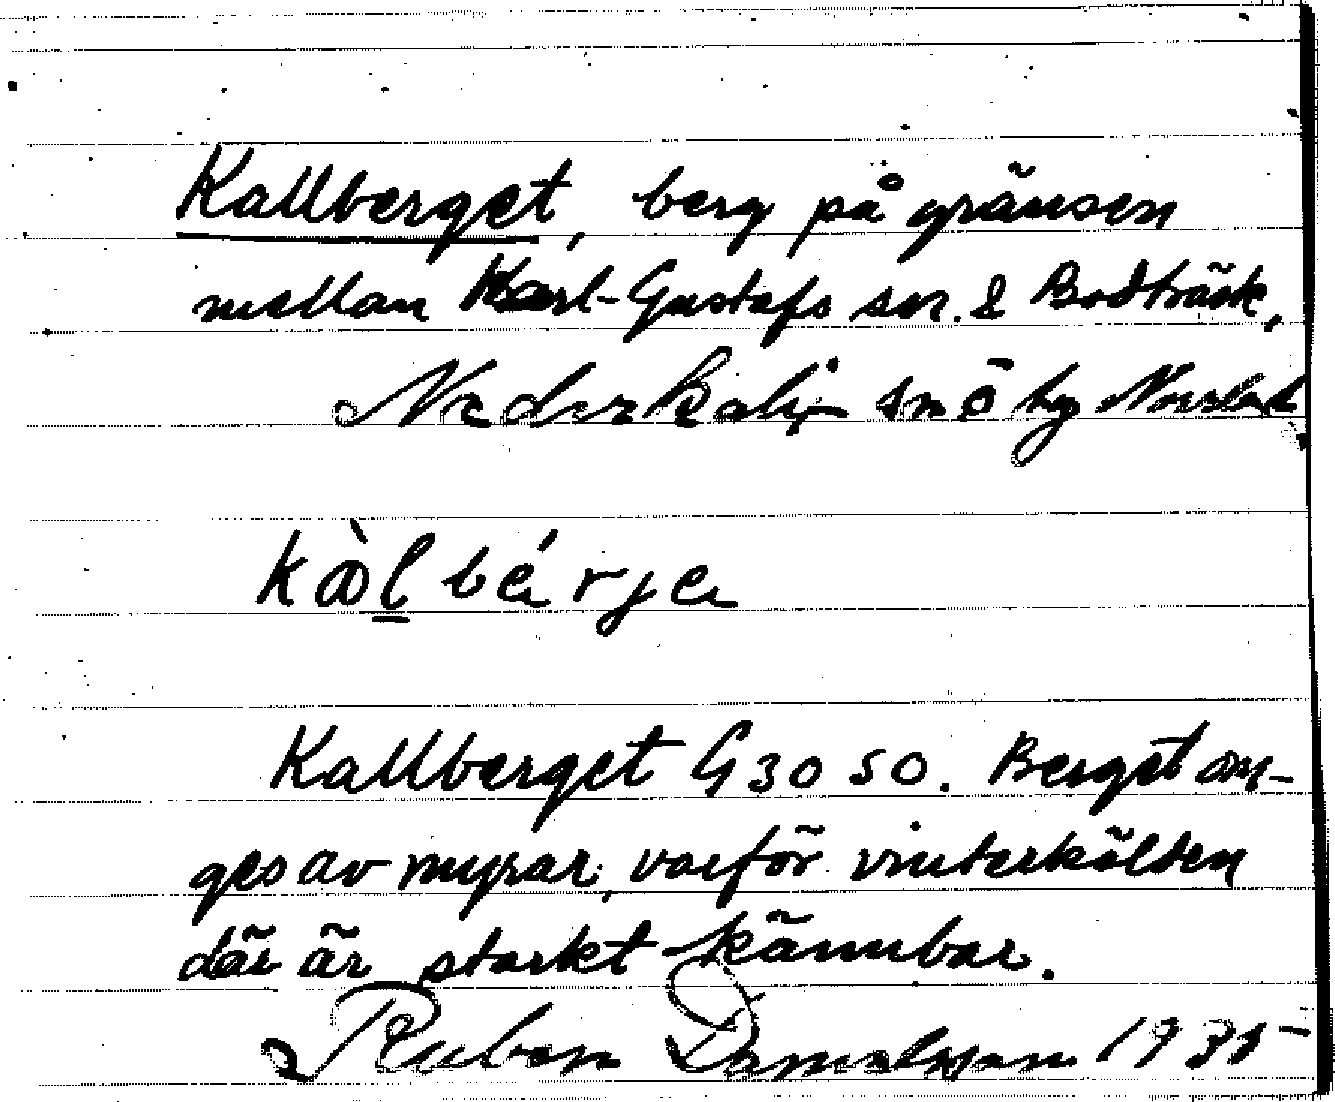 Kallberget, berg på gränsen
mellan Karl-Gustafs sn. & Bodträsk,
Nederkalix snö by Norrland
kàlbérje
Kallberget G 30 SO. Berget om-
ges av myrar, varför vinterkölden
där är starkt kännbar.
Ruben Danielsson 1935